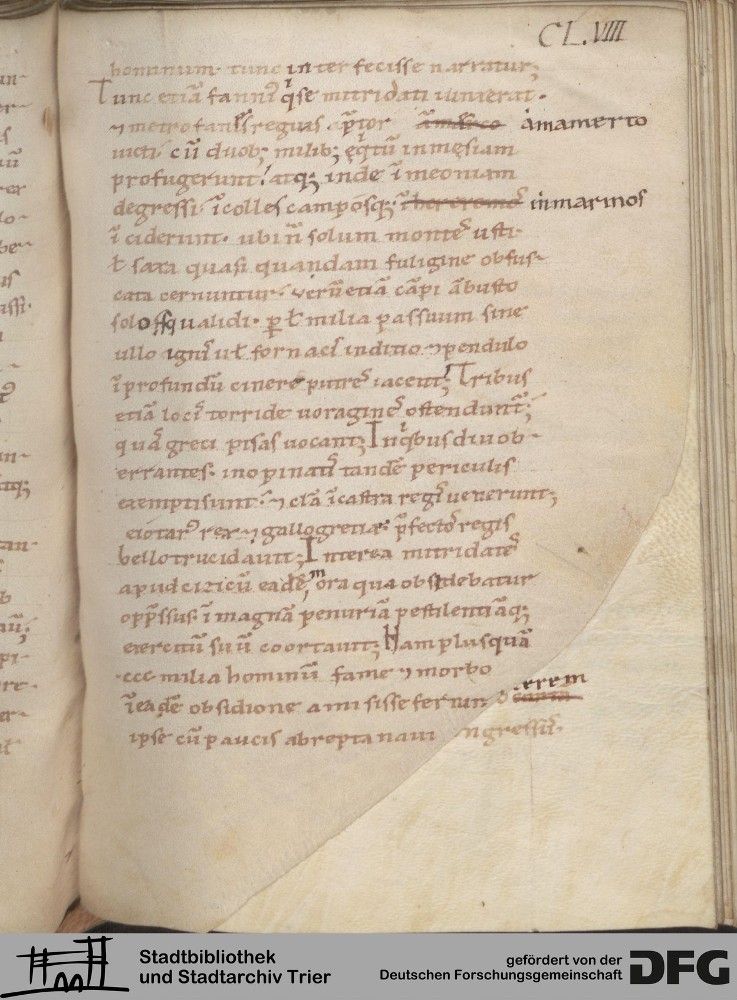 CL.VIII
hominum. tunc inter fecisse narratur;
Tunc etiā fannis q̇se mitridati iunxerat.
⁊ metrofanes regius p̄tor amamerto
uicti. cū duob; milib; eq̇tū inmęsiam
profugerunt. atq; inde ī meoniam
degressi. ī colles camposq; inmarinos
ī ciderunt. ubi n̄ solum montes usti
ł saxa quasi quandam fuligine obfus-
cata cernuntur. verū etiā cāpi ābusto
solo squalidi. p ł milia passuum sine
ullo ignis uł fornacis inditio ⁊ pendulo
ī profundū cinere putres iacent; Tribus
etiā locis torride uoragines ostendunt̄;
quas greci pisas uocant; In q̇bus diu ob-
errantes. inopinatis tandē periculis
exemptisunt. ⁊ clā ī castra regis uenerunt;
eiotar' rex ⁊ gallogretię. p̄fectos regis
bello trucidauit; Interea mitridates
apud cizicū eadē mora qua obsidebatur
opp̄ssus. ī magnā penuriā pestilentiāq;
exercitū suū coortauit; Nam plus quā
.ccc milia hominū fame ⁊ morbo
ī eadē obsidione amisisse fertur
ipse cū paucis abrepta naui ngressus.
Stadtbibliothek
und Stadtarchiv Trier
gefördert von der
Deutschen Forschungsgemeinschaft
DFG